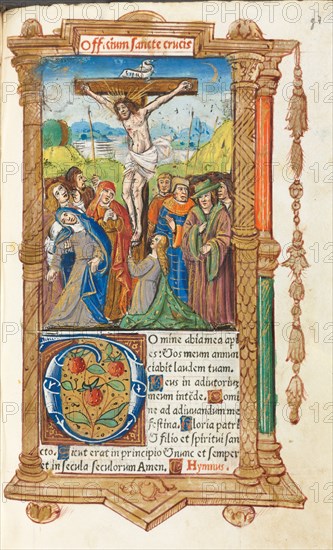 Officium sancte crucis
Omine labia mea ap
es: Et os meum annun
ciabit laudem tuam.
Deus in adiutoriu
meum intēde. Domi
ne ad adiuvandum me
festina. Gloria patri
& filio et spiritui san
cto. Sicut erat in principio & nunc et semper
et in secula seculorum Amen. Hymnus.